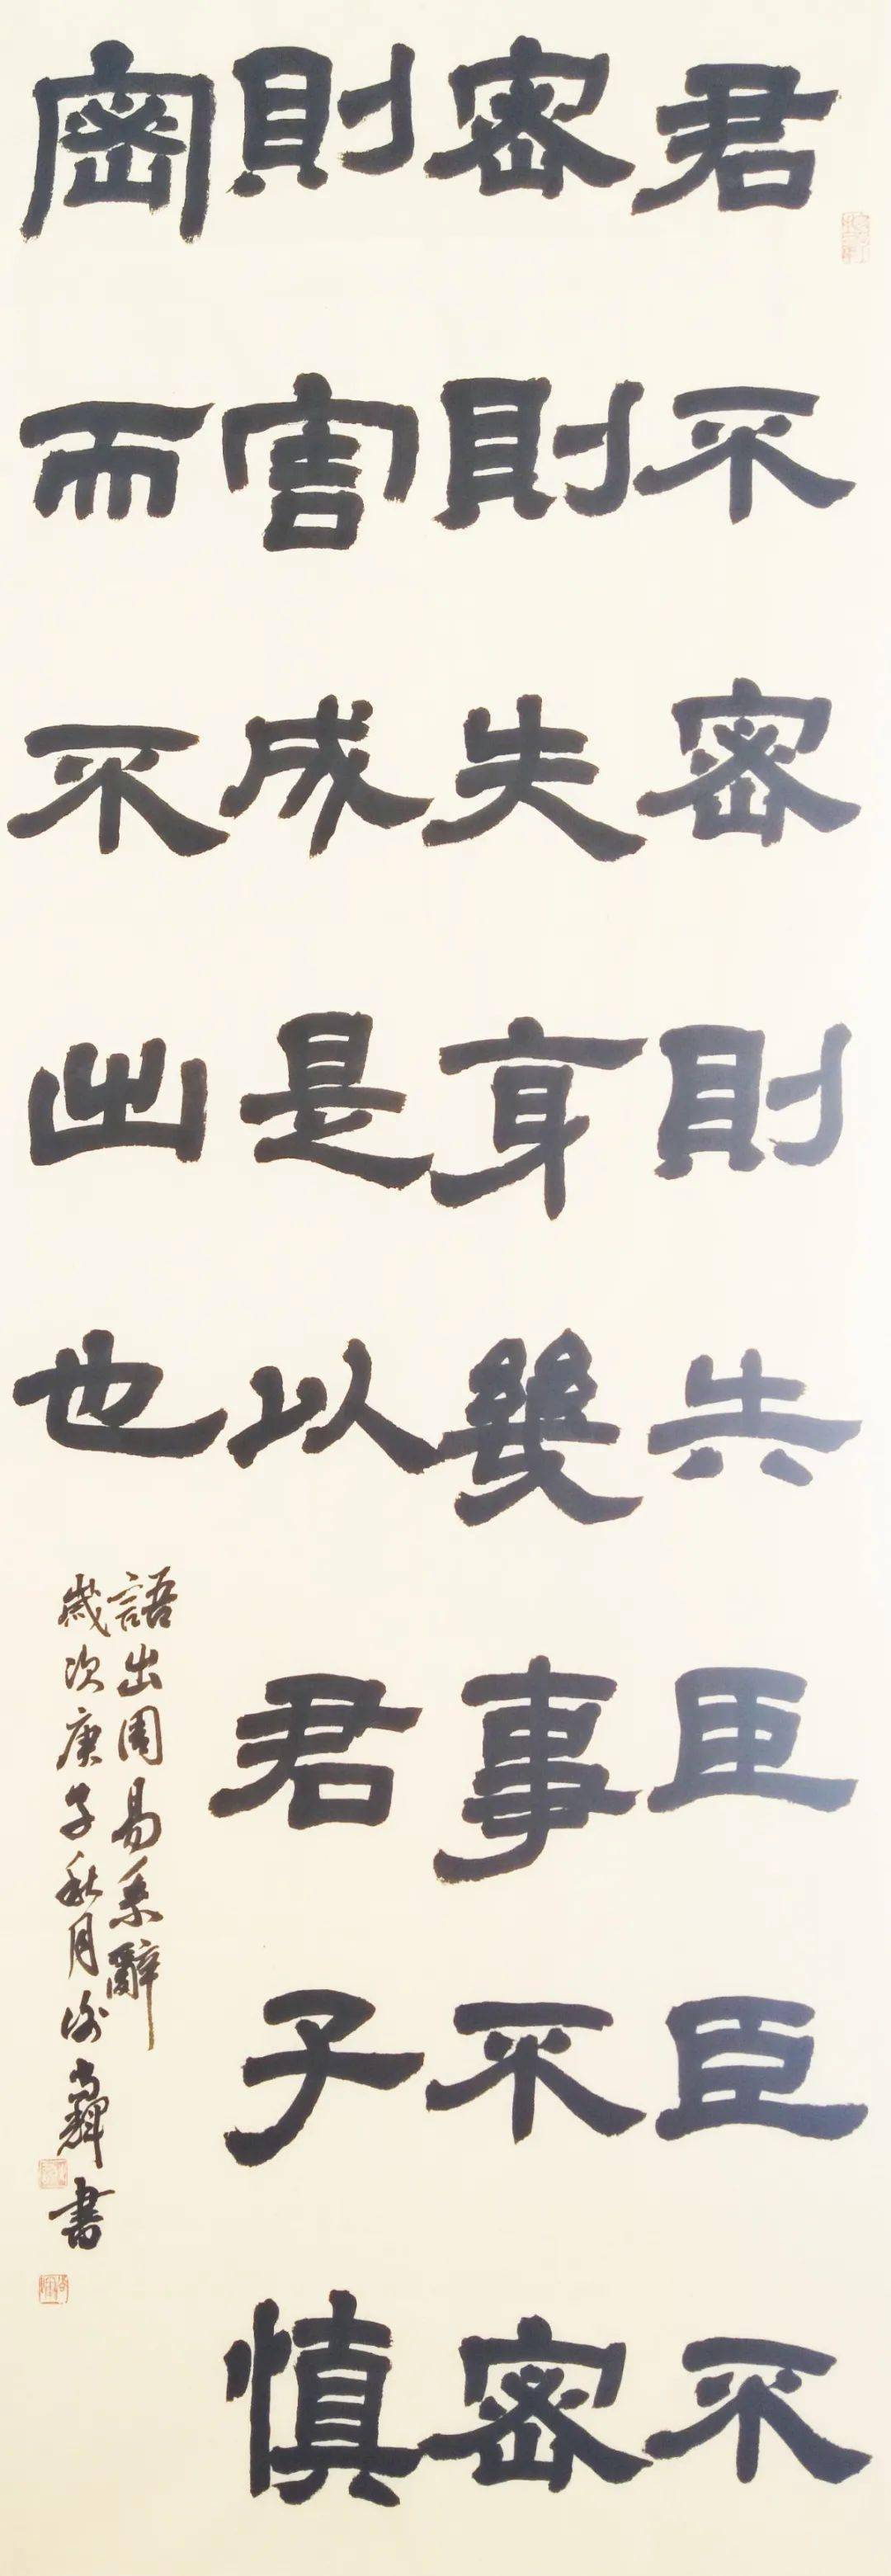 君不密則失臣臣不
密則失身幾事不密
則害成是以君子慎
密而不出也
語出周易系辭
歲次庚子秋月書